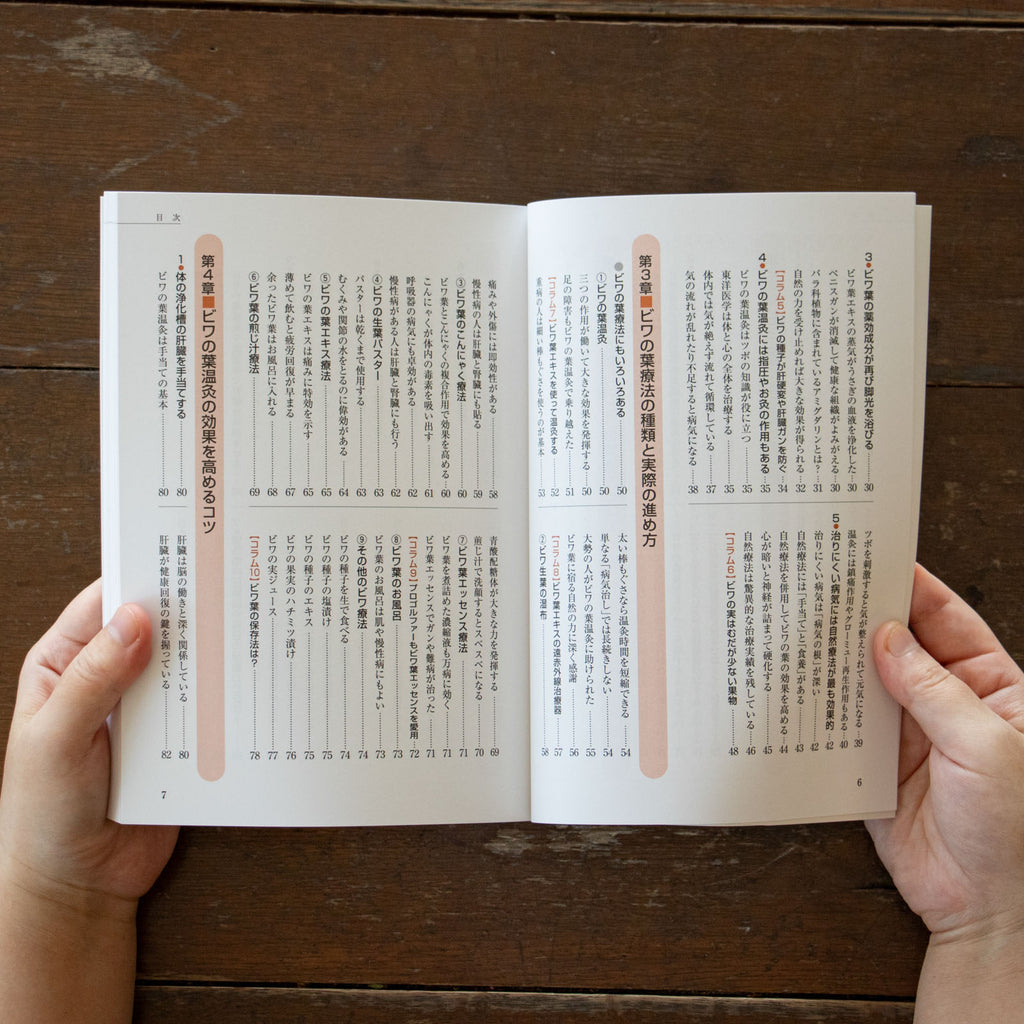 3●ビワ葉の薬効成分が再び脚光を浴びる 30
ビワ葉エキスの蒸気がうさぎの血液を浄化した 30
ベニスガンが消滅して健康な組織がよみがえる 30
バラ科植物に含まれているアミグダリンとは? 31
自然の力を受け止めれば大きな効果が得られる 32
【コラム5】ビワの種子が肝硬変や肝臓ガンを防ぐ 34
4●ビワの葉温灸には指圧やお灸の作用もある 35
ビワの葉温灸はツボの知識が役に立つ 35
東洋医学は体と心の全体を治療する 35
体内では気が絶えず流れて循環している 37
気の流れが乱れたり不足すると病気になる 38
ツボを刺激すると気が整えられて元気になる 39
温灸には鎮痛作用やグローミュー再生作用もある 40
5●治りにくい病気には自然療法が最も効果的 42
治りにくい病気は「病気の根」が深い 42
自然療法には「手当て」と「食養」がある 43
自然療法を併用してビワの葉の効果を高める 44
心が暗いと神経が詰まって硬化する 45
自然療法は驚異的な治療実績を残している 46
【コラム6】ビワの実はむだが少ない果物 48
第3章■ビワの葉療法の種類と実際の進め方
●ビワの葉療法にもいろいろある 50
①ビワの葉温灸 50
三つの作用が働いて大きな効果を発揮する 50
足の障害もビワの葉温灸で乗り越えた 51
【コラム7】ビワ葉エキスを使って温灸する 52
重病の人は細い棒もぐさを使うのが基本 53
太い棒もぐさなら温灸時間を短縮できる 54
単なる「病気治し」では長続きしない 54
大勢の人がビワの葉温灸に助けられた 55
ビワ葉に宿る自然の力に深く感謝 56
【コラム8】ビワ葉エキスの遠赤外線治療器 57
②ビワ生葉の湿布 58
6
目次
痛みや外傷には即効性がある 58
慢性病の人は肝臓と腎臓にも貼る 59
③ビワ葉のこんにゃく療法 60
ビワ葉とこんにゃくの複合作用で効果を高める 60
こんにゃくが体内の毒素を吸い出す 61
呼吸器の病気にも卓効がある 62
慢性病がある人は肝臓と腎臓にも行う 62
④ビワの生葉パスター 63
パスターは乾くまで使用する 63
むくみや関節の水をとるのに偉効がある 64
⑤ビワの葉エキス療法 65
ビワの葉エキスは痛みに特効を示す 65
薄めて飲むと疲労回復が早まる 67
余ったビワ葉はお風呂に入れる 68
⑥ビワ葉の煎じ汁療法 69
青酸配糖体が大きな力を発揮する 69
煎じ汁で洗顔するとスベスベになる 70
⑦ビワ葉エッセンス療法 71
ビワ葉を煮詰めた濃縮液も万病に効く 71
ビワ葉エッセンスでガンや難病が治った 71
【コラム9】プロゴルファーもビワ葉エッセンスを愛用 72
⑧ビワ葉のお風呂 73
ビワ葉のお風呂は肌や慢性病にもよい 73
⑨その他のビワ療法 74
ビワの種子を生で食べる 74
ビワの種子の塩漬け 75
ビワの種子のエキス 75
ビワの果実のハチミツ漬け 76
ビワの実ジュース 77
【コラム10】ビワ葉の保存法は? 78
第4章■ビワの葉温灸の効果を高めるコツ
1●体の浄化槽の肝臓を手当てする 80
ビワの葉温灸は手当ての基本 80
肝臓は脳の働きと深く関係している 80
肝臓が健康回復の鍵を握っている 82
7